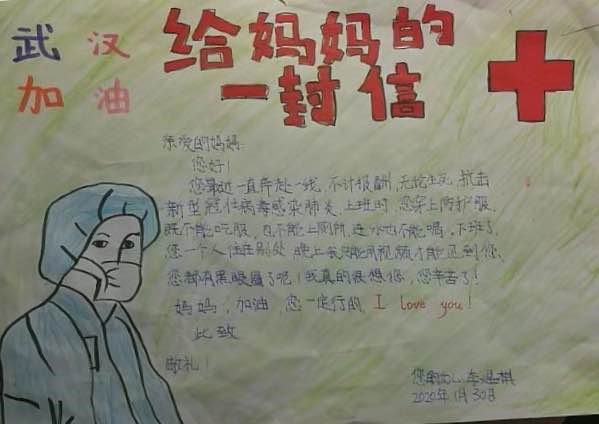 武汉
加油
给妈妈的
一封信
亲爱的妈妈:
您好!
您最近一直奔赴一线,不计报酬,无论生死,抗击
新型冠状病毒感染肺炎,上班时,您穿上防护服,
既不能吃饭,也不能上厕所,连水也不能喝,下班了,
您一个人住在别处 晚上我只能用视频才能见到您,
您都有黑眼圈了呢!我真的很想您,您辛苦了!
妈妈,加油,您一定行的 I love you!
此致
敬礼!
您的女儿 李
2020年1月30日